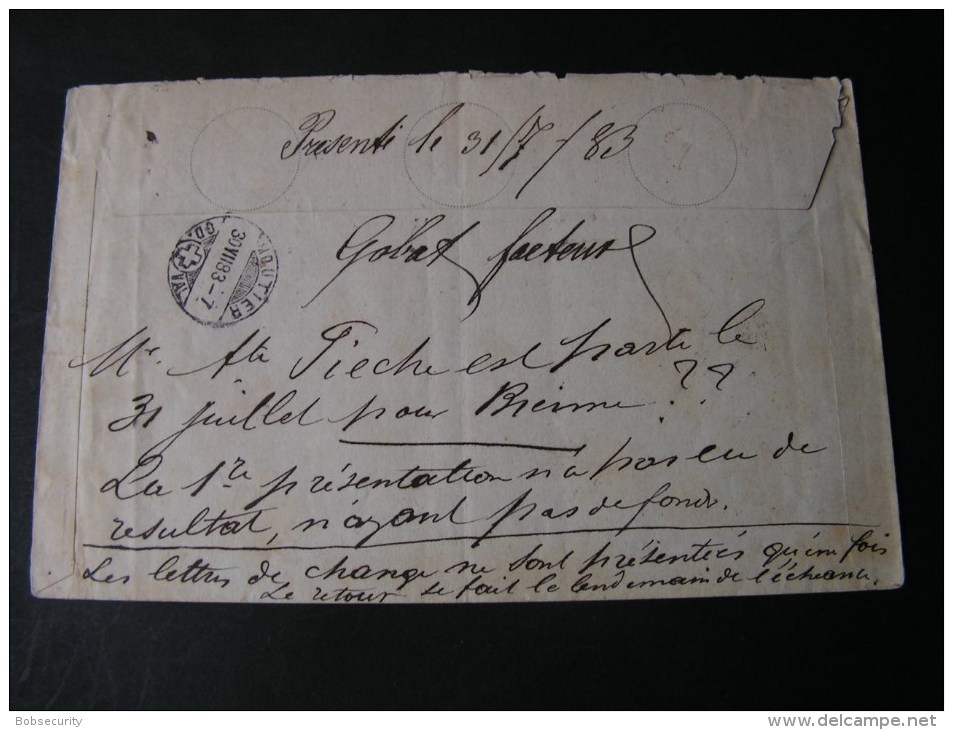 Presenté le 31/7/83
Gobat facteur
GD. VAL 30 VII 83 - 7 MOUTIER
Mr. Ate Pieche est parti le
31 juillet pour Bienne. ??
La 1re présentation n'a pas eu de
resultat, n'ayant pas de fonds.
Les lettres de change ne sont présentées qu'une fois
Le retour se fait le lendemain de l'écheance.
Bobsecurity
www.delcampe.net